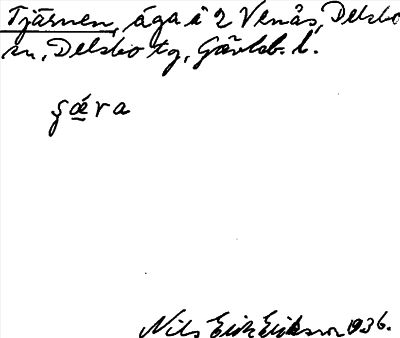 Tjärnen, äga i 2 Venås, Delsbo
sn, Delsbo tg, Gävleb. l.
Nils Erik Eriksson 1936.